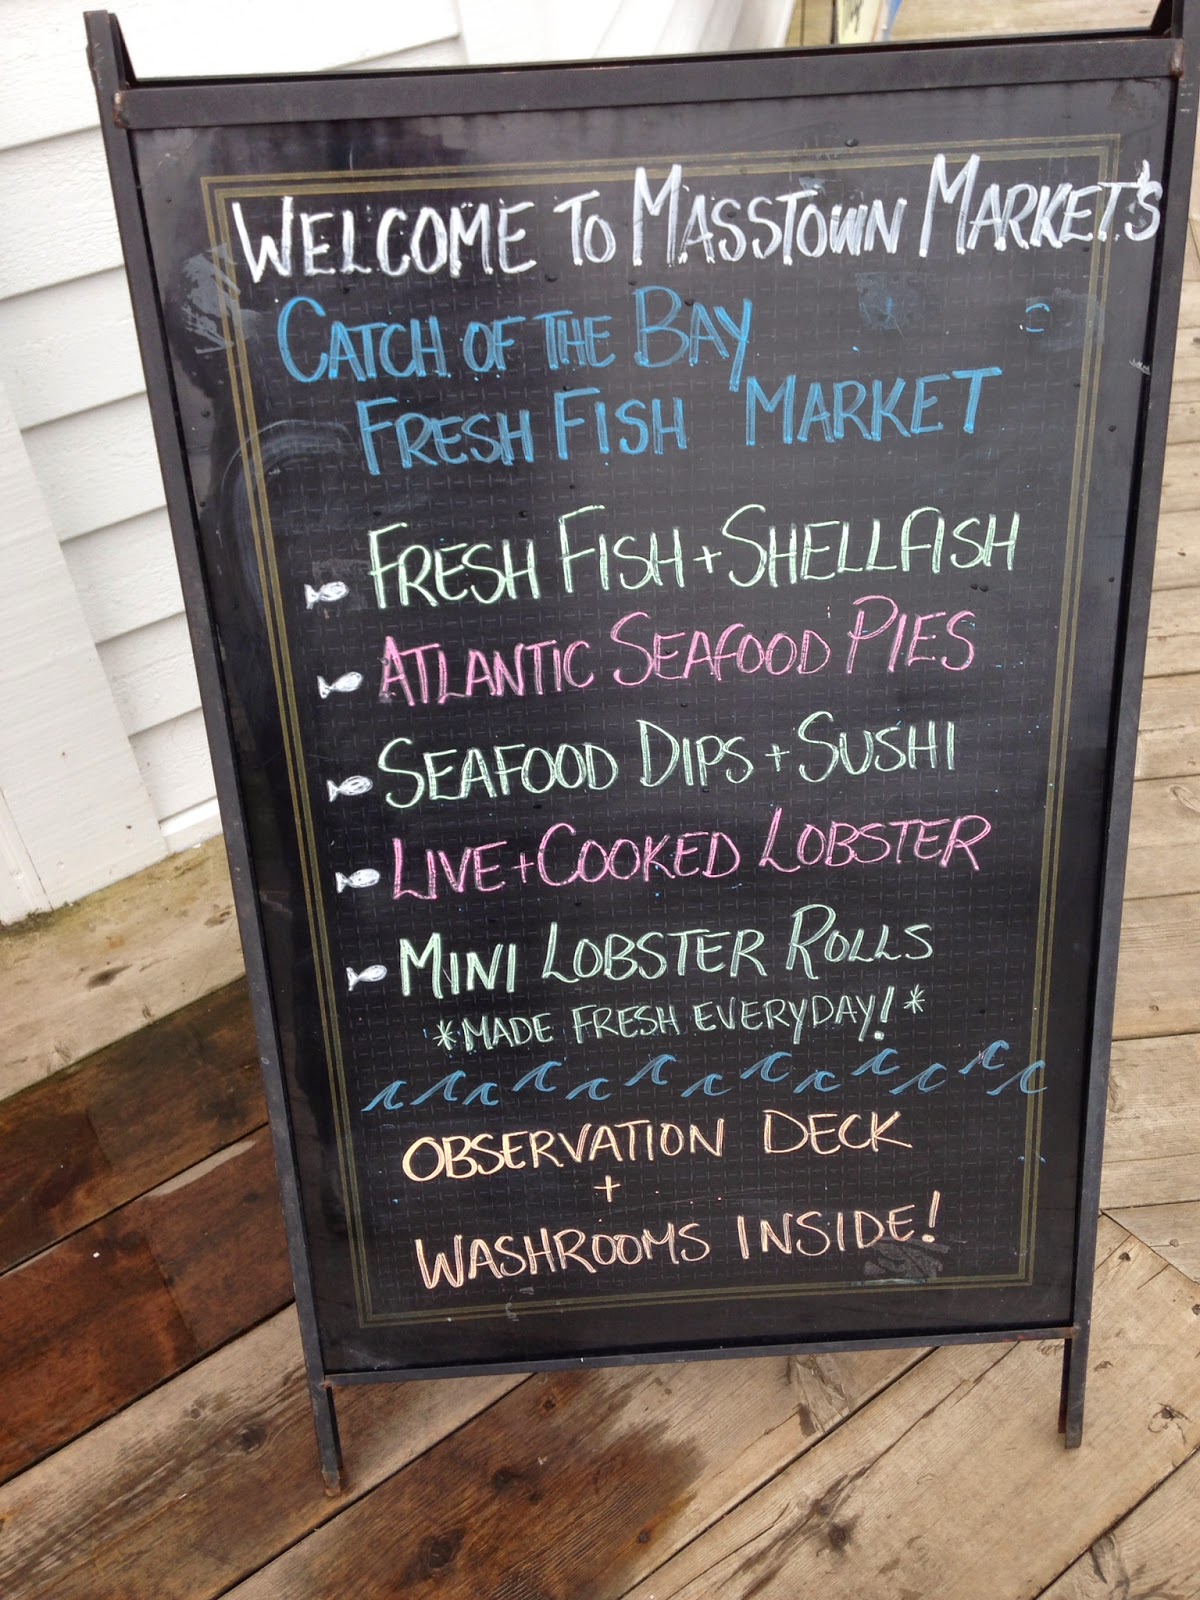 WELCOME TO MASSTOWN MARKET'S
CATCH OF THE BAY
FRESH FISH MARKET
FRESH FISH + SHELLFISH
ATLANTIC SEAFOOD PIES
SEAFOOD DIPS + SUSHI
LIVE + COOKED LOBSTER
MINI LOBSTER ROLLS
*MADE FRESH EVERYDAY!*
OBSERVATION DECK
+
WASHROOMS INSIDE!